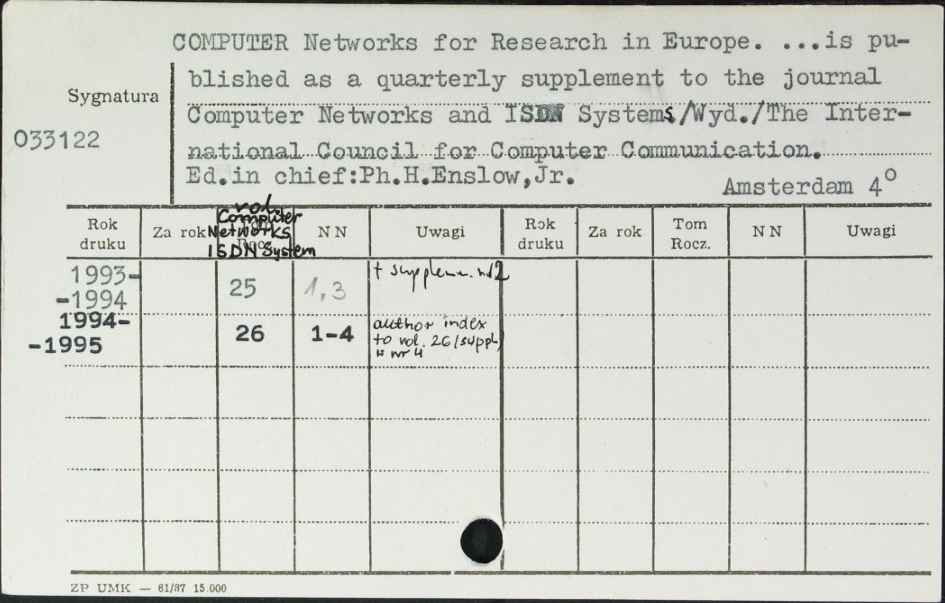 COMPUTER Networks for Research in Europe. ...is pu-
blished as a quarterly supplement to the journal
Sygnatura
Computer Networks and ISDN Systems/Wyd./The Inter-
033122
national Council for Computer Communication.
Ed.in chief:Ph.H.Enslow,Jr.
Amsterdam 4º
Rok druku Za rok vol. Computer Networks ISDN System NN Uwagi Rok druku Za rok Tom Rocz. NN Uwagi
1993-
-1994 25 1,3 + supplem. nr 2
1994-
-1995 26 1-4 author index
to vol. 26/suppl/
w nr 4
ZP UMK — 61/87 15.000